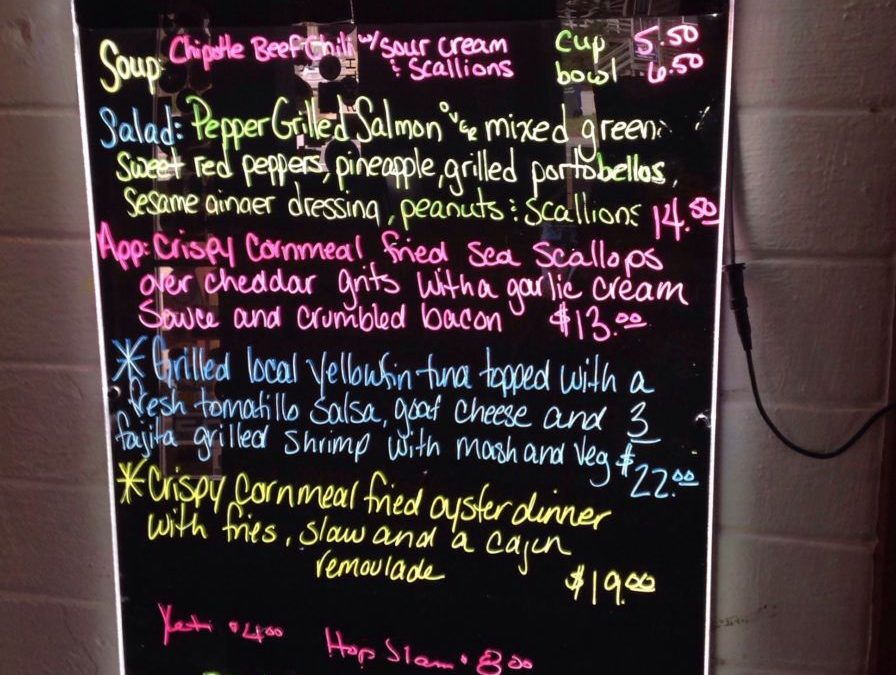 Soup: Chipotle Beef Chili w/ sour cream cup 5.50
& scallions bowl 6.50
Salad: Pepper Grilled Salmon over mixed greens
Sweet red peppers, pineapple, grilled portobellos,
Sesame ginger dressing, peanuts & scallions 14.50
App: Crispy Cornmeal fried sea scallops
over cheddar grits with a garlic cream
Sauce and crumbled bacon $13.00
* Grilled local yellowfin tuna topped with a
fresh tomatillo salsa, goat cheese and 3
fajita grilled shrimp with mash and veg $22.00
* Crispy cornmeal fried oyster dinner
with fries, slaw and a cajun
remoulade $19.00
Yeti $4.00 Hop Slam 8.00